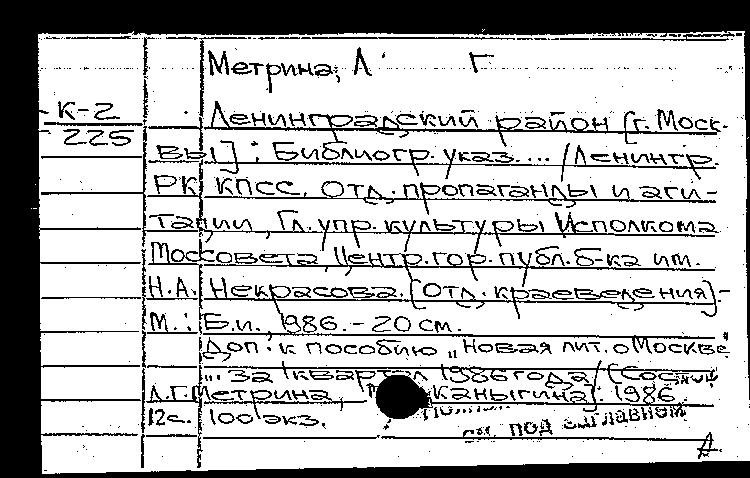 Метрина, Л. Г
К-2
225
Ленинградский район [г. Моск-
вы]: Библиогр. указ... / Ленингр.
РК КПСС, Отд. пропаганды и аги-
тации, Гл. упр. культуры Исполкома
Моссовета, Центр. гор. публ. б-ка им.
Н.А. Некрасова. [Отд. краеведения].-
М.: Б.и., 1986. - 20 см.
Доп. к пособию „Новая лит. о Москве"
... за 1 квартал 1986 года / (Сост.
Л.Г. Метрина, Каныгина). 1986
12с. 100 экз.
см. под заглавном